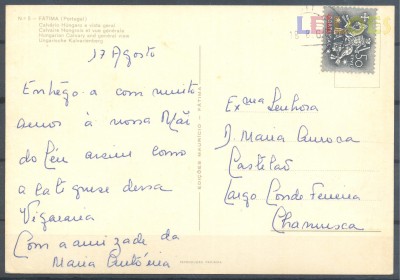 N.º 5 - FÁTIMA (Portugal)
Calvário Húngaro e vista geral
Calvaire Hongrois et vue générale
Hungarian Calvary and general view
Ungarische Kalvarienberg
17 Agosto
Entrego-a com muito
amor à nossa Mãi
do Céu assim como
a catequese dessa
Vigararia
Com a amizade da
Maria Antónia
EDIÇÕES MAURÍCIO - FÁTIMA
Exma Senhora
D. Maria Aurora
Castelão
Largo Conde Ferreira
Chamusca